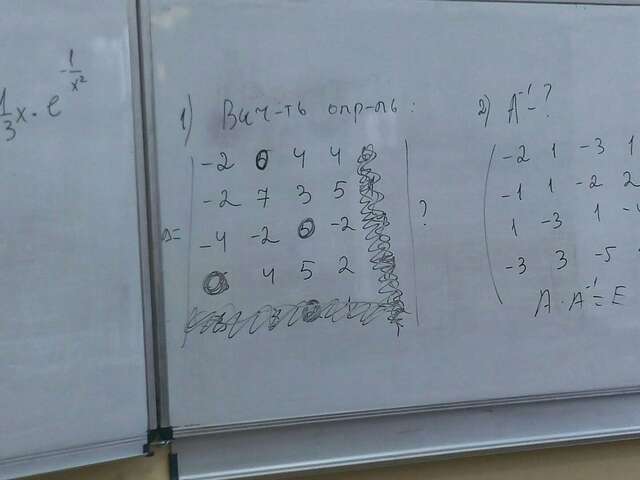 1/3 x · e^(-1/x²)
1) Выч-ть опр-ль:
-2 0 4 4
-2 7 3 5
Δ= -4 -2 0 -2 ?
0 4 5 2
2) A⁻¹-?
-2 1 -3 1
-1 1 -2 2
1 -3 1
-3 3 -5
A·A⁻¹=E